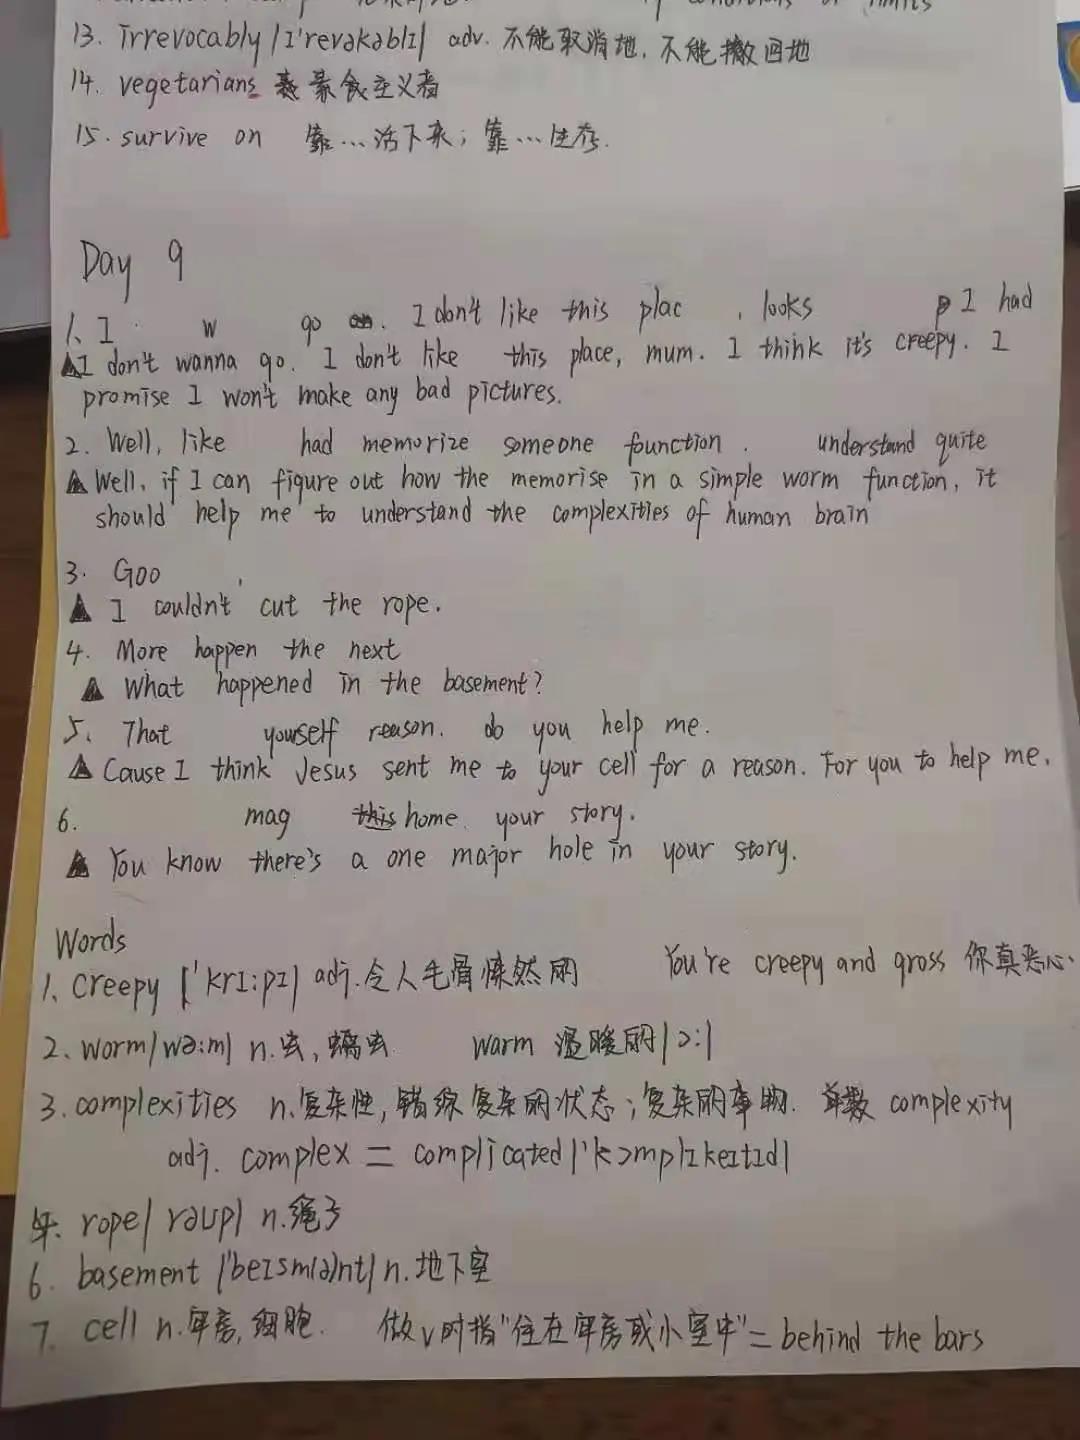 conditions or limits
13. irrevocably /ɪ'revəkəblɪ/ adv. 不能取消地,不能撤回地
14. vegetarians 素食主义者
15. survive on 靠…活下来;靠…生存.
Day 9
1. I w go . I don't like this plac , looks I had
▲I don't wanna go. I don't like this place, mum. I think it's creepy. I
promise I won't make any bad pictures.
2. Well, like had memorize someone founction. understand quite
▲Well, if I can figure out how the memorise in a simple worm function, it
should help me to understand the complexities of human brain
3. Goo
▲ I couldn't cut the rope.
4. More happen the next
▲ What happened in the basement?
5. That yourself reason. do you help me.
▲ Cause I think Jesus sent me to your cell for a reason. For you to help me.
6. mag this home your story.
▲ You know there's a one major hole in your story.
Words
1. creepy ['krɪ:pɪ] adj.令人毛骨悚然的 You're creepy and gross 你真恶心.
2. worm/wə:m/ n.虫,蠕虫 warm 温暖的/ɔ:/
3. complexities n.复杂性,错综复杂的状态;复杂的事物. 单数 complexity
adj. complex = complicated /'kɔmplɪkeɪtɪd/
rope/rəʊp/ n.绳子
6. basement /'beɪsm(ə)nt/ n.地下室
7. cell n.牢房,细胞. 做v时指"住在牢房或小室中"= behind the bars